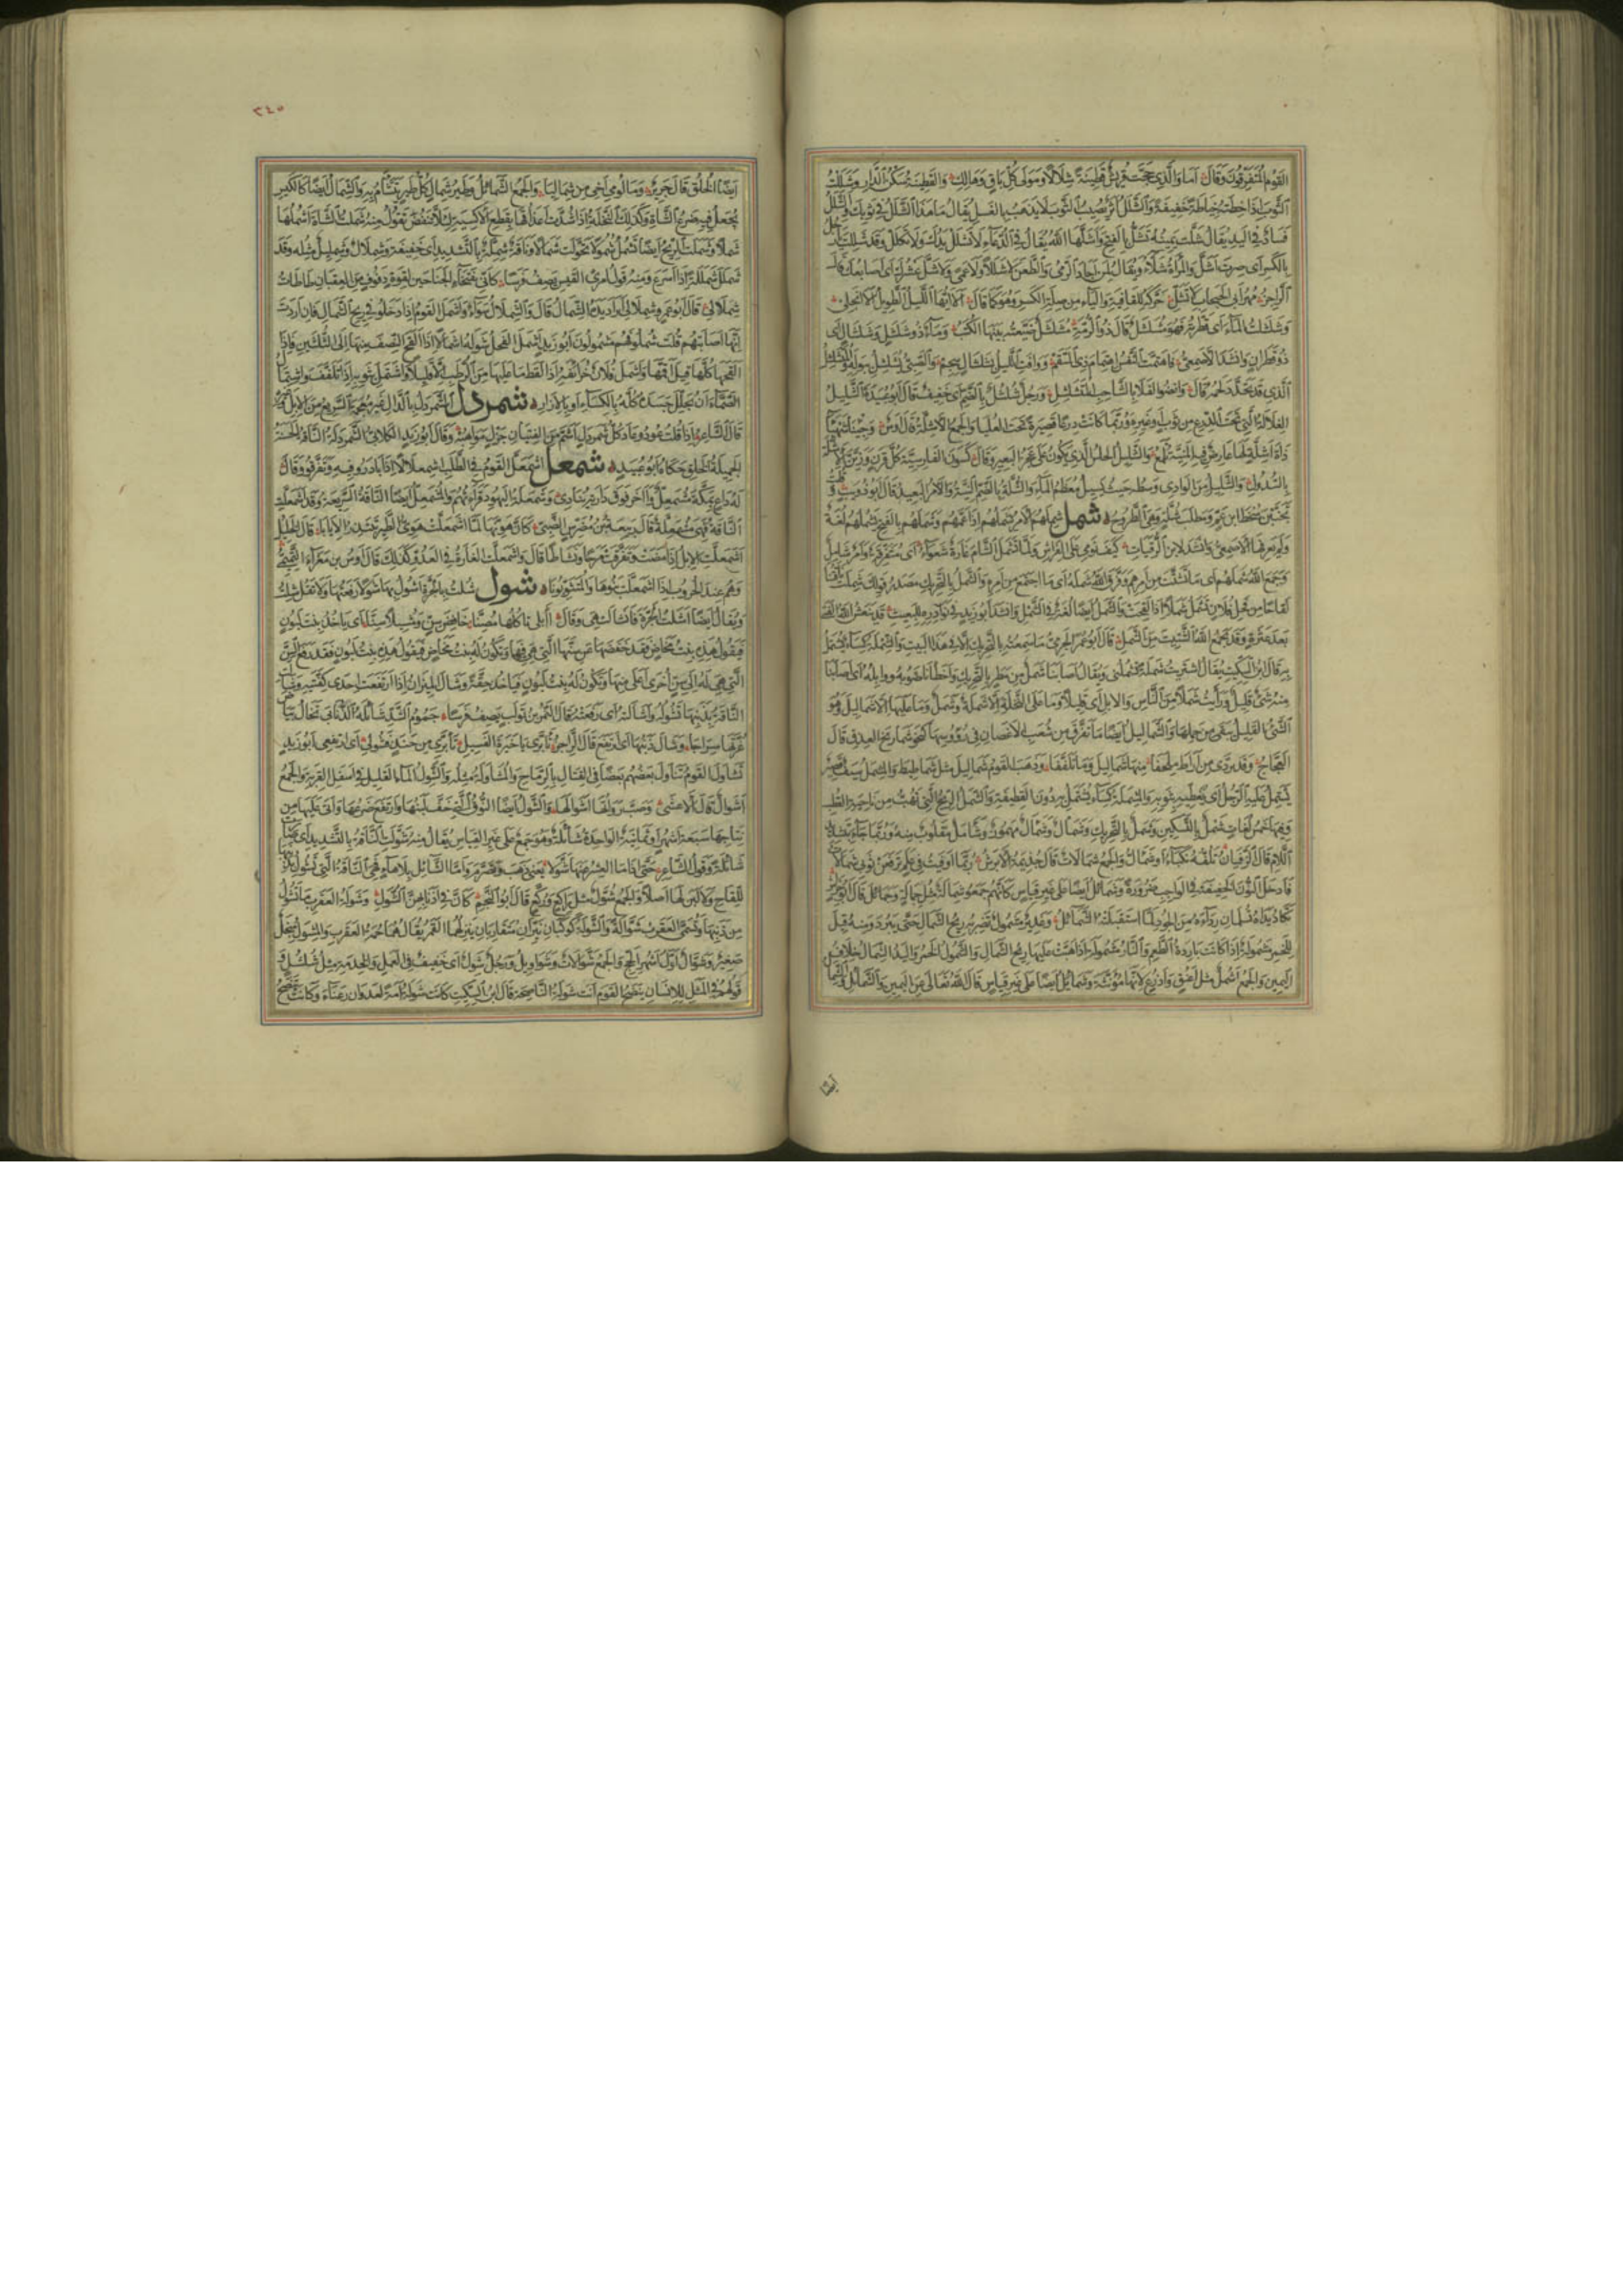 القَوْمُ المُتَفَرِّقُونَ وَقَالَ اَمَا وَالَّذِي حَجَّتْ قُرَيْشٌ قَطِينَهُ شِلَالًا وَمَوْلَى كُلِّ بَاقٍ وَهَالِكِ وَالقَطِينُ سَكْنُ الدَّارِ وَشَلَلْتُ
الثَّوْبَ اِذَا خِطْتَهُ خِيَاطَةً خَفِيفَةً وَالشَّلَلُ اَثَرٌ يُصِيبُ الثَّوْبَ لَا يَذْهَبُ بِالغَسْلِ يُقَالُ مَا هَذَا الشَّلَلُ فِي ثَوْبِكَ وَالشَّلَلُ
فَسَادٌ فِي اليَدِ يُقَالُ شَلَّتْ يَمِينُهُ تَشَلُّ بِالفَتْحِ وَاَشَلَّهَا اللهُ يُقَالُ فِي الدُّعَاءِ لَا تَشْلَلْ يَدُكَ وَلَا تَكْلَلْ وَقَدْ شَلِلْتَ يَا رَجُلُ
بِالكَسْرِ اَيْ صِرْتَ اَشَلَّ وَالمَرْاَةُ شَلَّاءُ وَيُقَالُ لِمَنْ اَجَادَ الرَّمْيَ وَالطَّعْنَ لَا شَلَلًا وَلَا عَمًى وَلَا شَلَّ عَشْرُكَ اَيْ اَصَابِعُكَ قَالَ
الرَّاجِزُ مُهْرَ اَبِي الحَبْحَابِ لَا تَشَلِّي حَرَّكَهُ لِلقَافِيَةِ وَاليَاءُ مِنْ صِلَةِ الكَسْرِ وَهُوَ كَمَا قَالَ اَلَا اَيُّهَا اللَّيْلُ الطَّوِيلُ اَلَا انْجَلِي
وَشَلْشَلْتُ المَاءَ اَيْ قَطَّرْتُهُ فَهُوَ مُشَلْشَلٌ قَالَ ذُو الرُّمَّةِ مُشَلْشَلٌ ضَيَّعَتْهُ بَيْنَهَا الكُتَبُ وَمَاءٌ ذُو شَلْشَلٍ وَشَلْشَالٍ اَيْ
ذُو قَطَرَانٍ وَاَنْشَدَ الاَصْمَعِيُّ وَاهْتَمَّتِ النَّفْسُ اهْتِمَامَ ذِي السَّقَمْ وَوَافَتِ اللَّيْلَ بِشَلْشَالٍ سَجَمْ وَالصَّبِيُّ يُشَلْشِلُ بِبَوْلِهِ وَالمُتَشَلْشِلُ
الَّذِي قَدْ تَخَدَّدَ لَحْمُهُ قَالَ وَاَنْضُو الفَلَا بِالشَّاحِبِ المُتَشَلْشِلِ وَرَجُلٌ شُلْشُلٌ بِالضَّمِّ اَيْ خَفِيفٌ قَالَ اَبُو عُبَيْدَةَ الشَّلِيلُ
الغِلَالَةُ الَّتِي تَحْتَ الدِّرْعِ مِنْ ثَوْبٍ اَوْ غَيْرِهِ وَرُبَّمَا كَانَتْ دِرْعًا قَصِيرَةً تَحْتَ العُلْيَا وَالجَمْعُ الاَشِلَّةُ قَالَ اَوْسٌ
بِالسُّدُولِ وَالشَّلِيلُ مِنَ الوَادِي وَسَطُهُ حَيْثُ يَسِيلُ مُعْظَمُ المَاءِ وَالشُّلَّةُ بِالضَّمِّ النِّيَّةُ وَالاَمْرُ البَعِيدُ قَالَ اَبُو ذُؤَيْبٍ
شمل شَمِلَهُمُ الاَمْرُ يَشْمَلُهُمْ اِذَا عَمَّهُمْ وَشَمَلَهُمْ بِالفَتْحِ يَشْمُلُهُمْ لُغَةٌ
وَلَمْ يَعْرِفْهَا الاَصْمَعِيُّ وَاَنْشَدَ لِابْنِ الرُّقَيَّاتِ كَيْفَ نَوْمِي عَلَى الفِرَاشِ وَلَمَّا تَشْمَلِ الشَّامَ غَارَةٌ شَعْوَاءُ اَيْ مُتَفَرِّقَةٌ وَاَمْرٌ شَامِلٌ
وَجَمَعَ اللهُ شَمْلَهُمْ اَيْ مَا تَشَتَّتَ مِنْ اَمْرِهِمْ وَفَرَّقَ اللهُ شَمْلَهُ اَيْ مَا اجْتَمَعَ مِنْ اَمْرِهِ وَالشَّمَلُ بِالتَّحْرِيكِ مَصْدَرُ قَوْلِكَ شَمِلَتْ نَاقَتُنَا
لِقَاحًا مِنْ فَحْلِ فُلَانٍ تَشْمَلُ شَمَلًا اِذَا لَقِحَتْ وَالشَّمَلُ اَيْضًا لُغَةٌ فِي الشَّمْلِ وَاَنْشَدَ اَبُو زَيْدٍ فِي نَوَادِرِهِ لِلْبَعِيثِ قَدْ يَنْعَشُ اللهُ الفَتَى
بَعْدَ عَثْرَةٍ وَقَدْ يَجْمَعُ اللهُ الشَّتِيتَ مِنَ الشَّمَلْ قَالَ اَبُو عُمَرَ الجَرْمِيُّ مَا سَمِعْتُهُ بِالتَّحْرِيكِ اِلَّا فِي هَذَا البَيْتِ وَالشَّمْلَةُ كِسَاءٌ يُشْتَمَلُ
بِهِ قَالَ ابْنُ السِّكِّيتِ يُقَالُ اشْتَرَيْتُ شَمْلَةً تَشْمُلُنِي وَيُقَالُ اَصَابَنَا شَمَلٌ مِنْ مَطَرٍ بِالتَّحْرِيكِ وَاَخْطَاَنَا صَوْبُهُ وَوَابِلُهُ اَيْ اَصَابَنَا
مِنْهُ شَيْءٌ قَلِيلٌ وَرَاَيْتُ شَمَلًا مِنَ النَّاسِ وَالاِبِلِ اَيْ قَلِيلًا وَمَا عَلَى النَّخْلَةِ اِلَّا شَمَلَةٌ وَشَمَلٌ وَمَا عَلَيْهَا اِلَّا شَمَالِيلُ وَهُوَ
الشَّيْءُ القَلِيلُ يَبْقَى مِنْ حَمْلِهَا وَالشَّمَالِيلُ اَيْضًا مَا تَفَرَّقَ مِنْ شُعَبِ الاَغْصَانِ فِي رُؤُوسِهَا كَنَحْوِ شَمَارِيخِ العِذْقِ قَالَ
العَجَّاجُ وَقَدْ تَرَدَّى مِنْ اَرَاطٍ مِلْحَفَا مِنْهَا شَمَالِيلُ وَمَا تَلَفَّفَا وَذَهَبَ القَوْمُ شَمَالِيلَ مِثْلُ شَمَاطِيطَ وَالمِشْمَلُ سَيْفٌ قَصِيرٌ
يَشْتَمِلُ عَلَيْهِ الرَّجُلُ اَيْ يُغَطِّيهِ بِثَوْبِهِ وَالمِشْمَلَةُ كِسَاءٌ يُشْتَمَلُ بِهِ دُونَ القَطِيفَةِ وَالشَّمَالُ الرِّيحُ الَّتِي تَهُبُّ مِنْ نَاحِيَةِ القُطْبِ
وَفِيهَا خَمْسُ لُغَاتٍ شَمْلٌ بِالتَّسْكِينِ وَشَمَلٌ بِالتَّحْرِيكِ وَشَمَالٌ وَشَمْاَلٌ مَهْمُوزٌ وَشَامَلٌ مَقْلُوبٌ مِنْهُ وَرُبَّمَا جَاءَ بِتَشْدِيدِ
اللَّامِ قَالَ الزَّفَيَانُ تَلُفُّهُ نَكْبَاءُ اَوْ شَمْاَلُّ وَالجَمْعُ شَمَالَاتٌ قَالَ جَذِيمَةُ الاَبْرَشُ رُبَّمَا اَوْفَيْتُ فِي عَلَمٍ تَرْفَعَنْ ثَوْبِي شَمَالَاتُ
فَاَدْخَلَ النُّونَ الخَفِيفَةَ فِي الوَاجِبِ ضَرُورَةً وَشَمَائِلُ اَيْضًا عَلَى غَيْرِ قِيَاسٍ كَاَنَّهُمْ جَمَعُوا شِمَالَةً مِثْلَ حِمَالَةٍ وَحَمَائِلَ قَالَ اَبُو خِرَاشٍ
تَكَادُ يَدَاهُ تُسْلِمَانِ رِدَاءَهُ مِنَ الجُودِ لَمَّا اسْتَقْبَلَتْهُ الشَّمَائِلُ وَغَدِيرٌ مَشْمُولٌ تَضْرِبُهُ رِيحُ الشَّمَالِ حَتَّى يَبْرُدَ وَمِنْهُ قِيلَ
لِلخَمْرِ مَشْمُولَةٌ اِذَا كَانَتْ بَارِدَةَ الطَّعْمِ وَالنَّارُ مَشْمُولَةٌ اِذَا هَبَّتْ عَلَيْهَا رِيحُ الشَّمَالِ وَالشَّمُولُ الخَمْرُ وَاليَدُ الشِّمَالُ خِلَافُ
اليَمِينِ وَالجَمْعُ اَشْمُلٌ مِثْلُ اَعْنُقٍ وَاَذْرُعٍ لِاَنَّهَا مُؤَنَّثَةٌ وَشَمَائِلُ اَيْضًا عَلَى غَيْرِ قِيَاسٍ قَالَ اللهُ تَعَالَى عَنِ اليَمِينِ وَالشَّمَائِلِ وَالشِّمَالُ
اَيْضًا
٣٤٥
اَيْضًا الخُلُقُ قَالَ جَرِيرٌ وَمَا لَوْمِي اَخِي مِنْ شِمَالِيَا وَالجَمْعُ الشَّمَائِلُ وَطَيْرُ شِمَالٍ كُلُّ طَيْرٍ يُتَشَاءَمُ بِهِ وَالشِّمَالُ اَيْضًا كَالكِيسِ
يُجْعَلُ فِيهِ ضَرْعُ الشَّاةِ وَكَذَلِكَ النَّخْلَةُ اِذَا شُدَّتْ اَعْذَاقُهَا بِقِطَعِ الاَكْسِيَةِ لِئَلَّا تَنْفُضَ تَقُولُ مِنْهُ شَمَلْتُ الشَّاةَ اَشْمُلُهَا
شَمْلًا وَشَمَلَتِ الرِّيحُ اَيْضًا تَشْمُلُ شُمُولًا تَحَوَّلَتْ شَمَالًا وَنَاقَةٌ شِمِلَّةٌ بِالتَّشْدِيدِ اَيْ خَفِيفَةٌ وَشِمْلَالٌ وَشِمْلِيلٌ مِثْلُهُ وَقَدْ
شَمْلَلَ شَمْلَلَةً اِذَا اَسْرَعَ وَمِنْهُ قَوْلُ امْرِئِ القَيْسِ يَصِفُ فَرَسًا كَاَنِّي بِفَتْخَاءِ الجَنَاحَيْنِ لَقْوَةٍ دَفُوفٍ مِنَ العِقْبَانِ طَاْطَاْتُ
شِمْلَالِي قَالَ اَبُو عَمْرٍو شِمْلَالِي اَرَادَ يَدَهُ الشِّمَالَ قَالَ وَالشِّمْلَالُ سَوَاءٌ وَاَشْمَلَ القَوْمُ اِذَا دَخَلُوا فِي رِيحِ الشَّمَالِ فَاِنْ اَرَدْتَ
اَنَّهَا اَصَابَتْهُمْ قُلْتَ شُمِلُوا فَهُمْ مَشْمُولُونَ اَبُو زَيْدٍ اَشْمَلَ الفَحْلُ شَوْلَهُ اِشْمَالًا اِذَا اَلْقَحَ النِّصْفَ مِنْهَا اِلَى الثُّلُثَيْنِ فَاِذَا
اَلْقَحَهَا كُلَّهَا قِيلَ اَقَمَّهَا وَاَشْمَلَ فُلَانٌ خَرَائِفَهُ اِذَا لَقَطَ مَا عَلَيْهَا مِنَ الرُّطَبِ اِلَّا قَلِيلًا وَاشْتَمَلَ بِثَوْبِهِ اِذَا تَلَفَّفَ وَاشْتِمَالُ
الصَّمَّاءِ اَنْ يُجَلِّلَ جَسَدَهُ كُلَّهُ بِالكِسَاءِ اَوْ بِالاِزَارِ شمردل الشَّمَرْدَلُ بِالدَّالِ غَيْرِ مُعْجَمَةٍ السَّرِيعُ مِنَ الاِبِلِ
قَالَ الشَّاعِرُ اِذَا قُلْتُ عُودُوا عَادَ كُلُّ شَمَرْدَلٍ اَشَمَّ مِنَ الفِتْيَانِ جَزْلٍ مَوَاهِبُهْ وَقَالَ اَبُو زِيَادٍ الكِلَابِيُّ الشَّمَرْدَلَةُ النَّاقَةُ الحَسَنَةُ
الجَمِيلَةُ الخَلْقِ حَكَاهُ اَبُو عُبَيْدٍ شمعل اشْمَعَلَّ القَوْمُ فِي الطَّلَبِ اشْمِعْلَالًا اِذَا بَادَرُوا فِيهِ وَتَفَرَّقُوا وَقَالَ
لَهُ دَاعٍ بِمَكَّةَ مُشْمَعِلٌّ وَآخَرُ فَوْقَ دَارَتِهِ يُنَادِي وَشَمْعَلَةُ اليَهُودِ قِرَاءَتُهُمْ وَالمُشْمَعِلُّ اَيْضًا النَّاقَةُ السَّرِيعَةُ وَقَدِ اشْمَعَلَّتِ
النَّاقَةُ فَهِيَ مُشْمَعِلَّةٌ قَالَ رَبِيعَةُ بْنُ مَقْرُومٍ الضَّبِّيُّ كَاَنَّ هُوِيَّهَا لَمَّا اشْمَعَلَّتْ هُوِيُّ الطَّيْرِ تَبْتَدِرُ الاِيَابَا قَالَ الخَلِيلُ
اشْمَعَلَّتِ الاِبِلُ اِذَا مَضَتْ وَتَفَرَّقَتْ مَرَحًا وَنَشَاطًا قَالَ وَاشْمَعَلَّتِ الغَارَةُ فِي العَدُوِّ كَذَلِكَ قَالَ اَوْسُ بْنُ مَغْرَاءَ التَّمِيمِيُّ
وَهُمْ عِنْدَ الحُرُوبِ اِذَا اشْمَعَلَّتْ بَنُوهَا وَالمُتَثَوِّبُونَا شول شُلْتُ بِالجَرَّةِ اَشُولُ بِهَا شَوْلًا رَفَعْتُهَا وَلَا تَقُلْ شِلْتُ
وَيُقَالُ اَيْضًا اَشَلْتُ الجَرَّةَ فَانْشَالَتْ هِيَ وَقَالَ اَاِبِلِي تَاْكُلُهَا مُصِنَّا خَافِضَ سِنٍّ وَمُشِيلًا سِنَّا اَيْ يَاْخُذُ بِنْتَ لَبُونٍ
فَيَقُولُ هَذِهِ بِنْتُ مَخَاضٍ فَقَدْ خَفَضَهَا عَنْ سِنِّهَا الَّتِي هِيَ فِيهَا وَتَكُونُ لَهُ بِنْتُ مَخَاضٍ فَيَقُولُ هَذِهِ بِنْتُ لَبُونٍ فَقَدْ رَفَعَ السِّنَّ
الَّتِي هِيَ لَهُ اِلَى سِنٍّ اُخْرَى اَعْلَى مِنْهَا وَتَكُونُ لَهُ بِنْتُ لَبُونٍ فَيَاْخُذُ حِقَّةً وَشَالَ المِيزَانُ اِذَا ارْتَفَعَتْ اِحْدَى كِفَّتَيْهِ وَشَالَتِ
النَّاقَةُ بِذَنَبِهَا تَشُولُهُ وَاَشَالَتْهُ اَيْ رَفَعَتْهُ قَالَ النَّمِرُ بْنُ تَوْلَبٍ يَصِفُ فَرَسًا جَمُومُ الشَّدِّ شَائِلَةُ الذُّنَابَى تَخَالُ بَيَاضَ
غُرَّتِهَا سِرَاجَا وَشَالَ ذَنَبُهَا اَيِ ارْتَفَعَ قَالَ الرَّاجِزُ تَاَبَّرِي يَا خَيْرَةَ الفَسِيلِ تَاَبَّرِي مِنْ حَنَذٍ فَشُولِي اَيِ ارْتَفِعِي اَبُو زَيْدٍ
تَشَاوَلَ القَوْمُ تَنَاوَلَ بَعْضُهُمْ بَعْضًا فِي القِتَالِ بِالرِّمَاحِ وَالمُشَاوَلَةُ مِثْلُهُ وَالشَّوْلُ المَاءُ القَلِيلُ فِي اَسْفَلِ القِرْبَةِ وَالجَمْعُ
اَشْوَالٌ قَالَ الاَعْشَى وَصَبَّ رُوَاتُهَا اَشْوَالَهَا وَالشَّوْلُ اَيْضًا النُّوقُ الَّتِي خَفَّ لَبَنُهَا وَارْتَفَعَ ضَرْعُهَا وَاَتَى عَلَيْهَا مِنْ
نِتَاجِهَا سَبْعَةُ اَشْهُرٍ اَوْ ثَمَانِيَةٌ الوَاحِدَةُ شَائِلَةٌ وَهُوَ جَمْعٌ عَلَى غَيْرِ القِيَاسِ يُقَالُ مِنْهُ شَوَّلَتِ النَّاقَةُ بِالتَّشْدِيدِ اَيْ صَارَتْ
شَائِلَةً وَقَوْلُ الشَّاعِرِ حَتَّى اِذَا مَا العَشْرُ عَنْهَا شَوَّلَا يَعْنِي ذَهَبَ وَتَصَرَّمَ وَاَمَّا الشَّائِلُ بِلَا هَاءٍ فَهِيَ النَّاقَةُ الَّتِي تَشُولُ بِذَنَبِهَا
لِلِّقَاحِ وَلَا لَبَنَ لَهَا اَصْلًا وَالجَمْعُ شُوَّلٌ مِثْلُ رَاكِعٍ وَرُكَّعٍ قَالَ اَبُو النَّجْمِ كَاَنَّ فِي اَذْنَابِهِنَّ الشُّوَّلِ وَشَوْلَةُ العَقْرَبِ مَا تَشُولُ
مِنْ ذَنَبِهَا وَتُسَمَّى العَقْرَبُ شَوَّالَةً وَالشَّوْلَةُ كَوْكَبَانِ نَيِّرَانِ مُتَقَارِبَانِ يَنْزِلُهُمَا القَمَرُ يُقَالُ لَهُمَا حُمَةُ العَقْرَبِ وَالمِشْوَلُ مِنْجَلٌ
صَغِيرٌ وَشَوَّالٌ اَوَّلُ اَشْهُرِ الحَجِّ وَالجَمْعُ شَوَّالَاتٌ وَشَوَاوِيلُ وَرَجُلٌ شَوِلٌ اَيْ خَفِيفٌ فِي العَمَلِ وَالخِدْمَةِ مِثْلُ شُلْشُلٍ وَ
قَوْلُهُمْ فِي المَثَلِ لِلاِنْسَانِ يَنْصَحُ القَوْمَ اَنْتَ شَوْلَةُ النَّاصِحَةُ قَالَ ابْنُ السِّكِّيتِ كَانَتْ شَوْلَةُ اَمَةً لِعَدْوَانَ رَعْنَاءَ وَكَانَتْ تَنْصَحُ